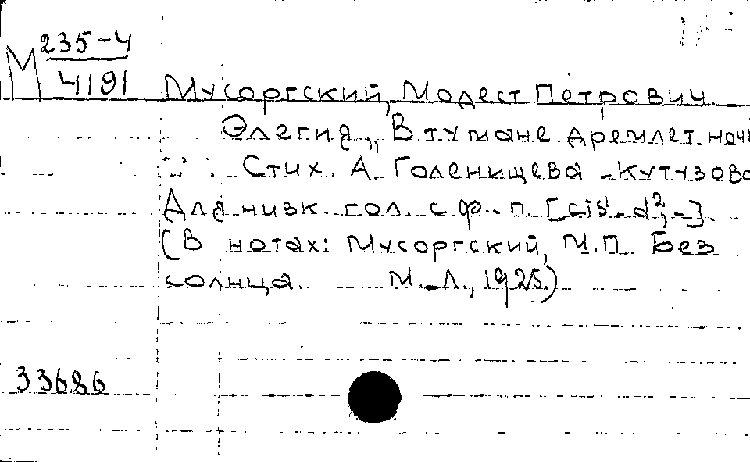 М 235-4
4191
Мусоргский, Модест Петрович.
Элегия „В тумане дремлет ночь
Стих. А. Голенищева-Кутузова
Для низк. гол. с ф.-п. [cis¹-d²].
(В нотах: Мусоргский, М.П. Без
солнца. М.-Л., 1925.)
33686